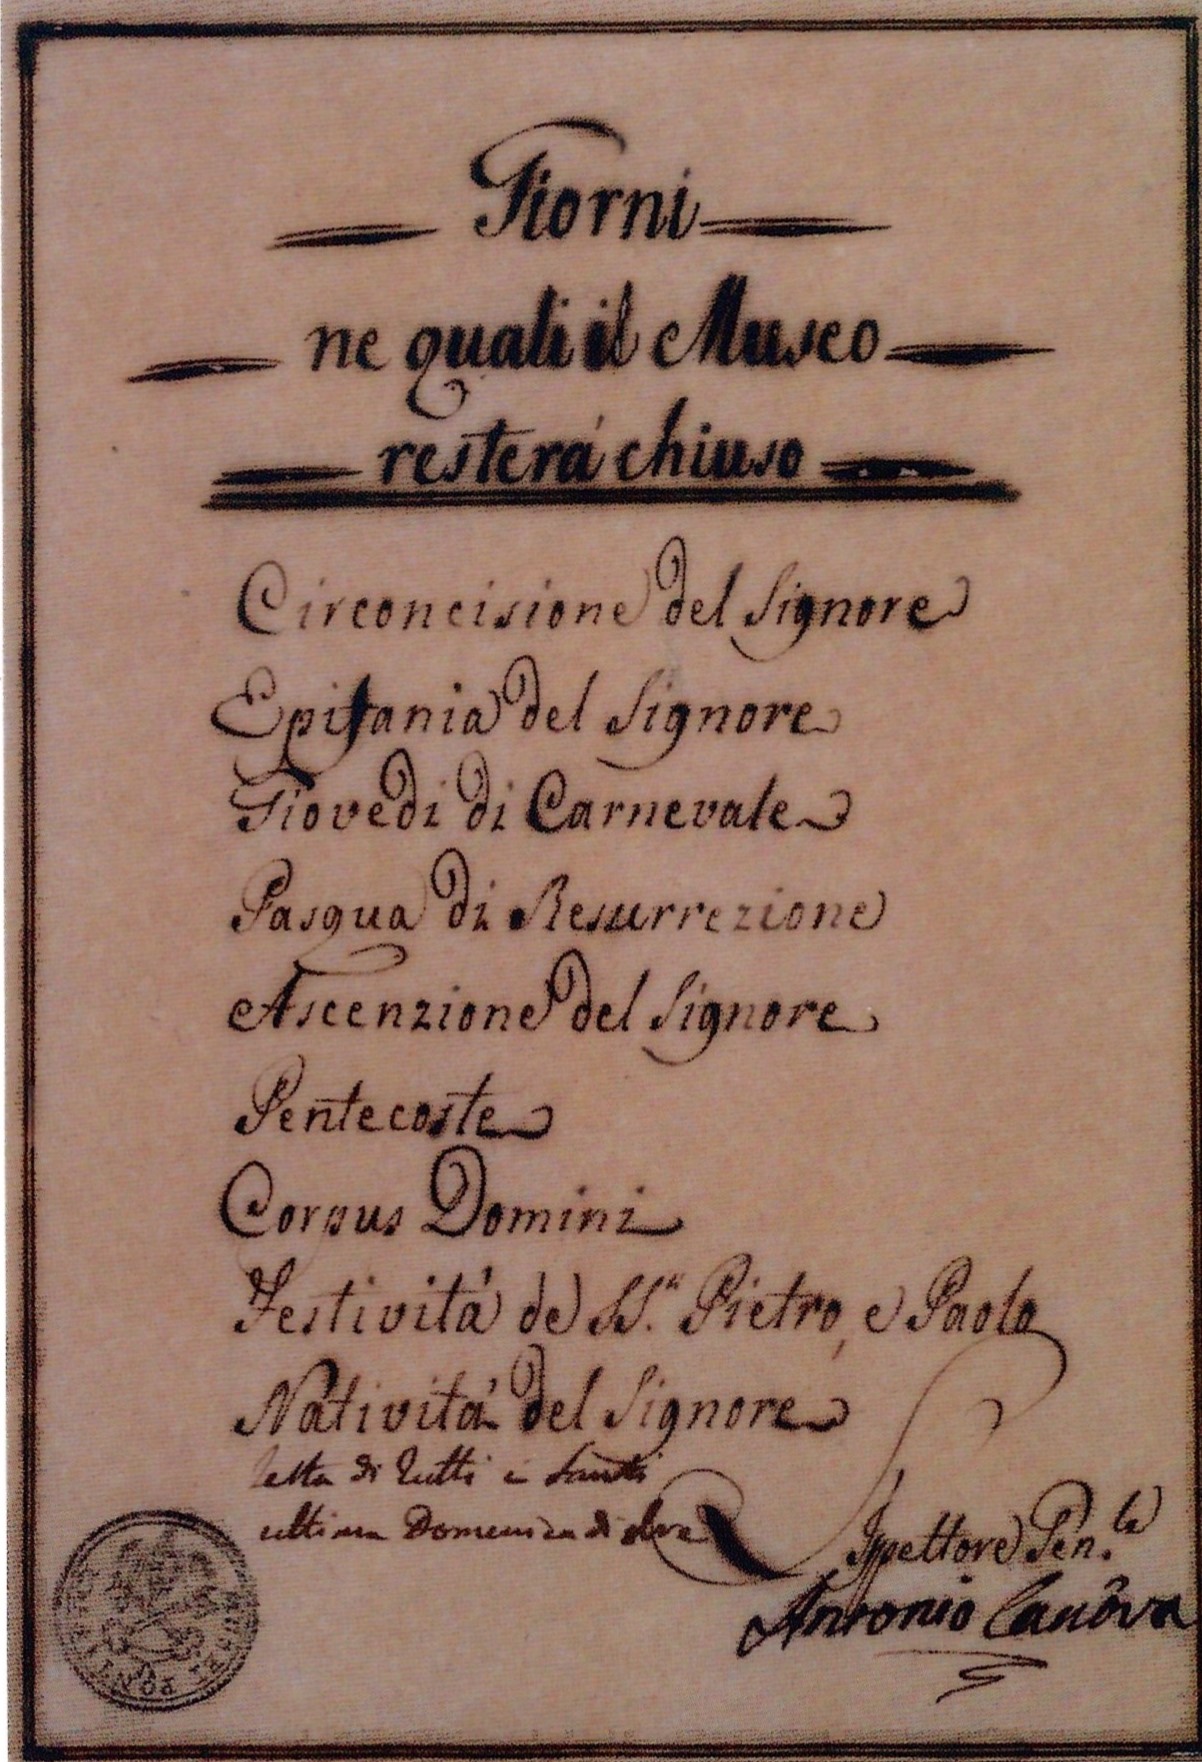 Giorni
ne quali il Museo
resterá chiuso
Circoncisione del Signore
Epifania del Signore
Giovedi di Carnevale
Pasqua di Resurrezione
Ascenzione del Signore
Pentecoste
Corpus Domini
Festivitá de SS.ti Pietro, e Paolo
Nativitá del Signore
festa di tutti i Santi
ultima Domenica di
Ispettore Gen.le
Antonio Canova